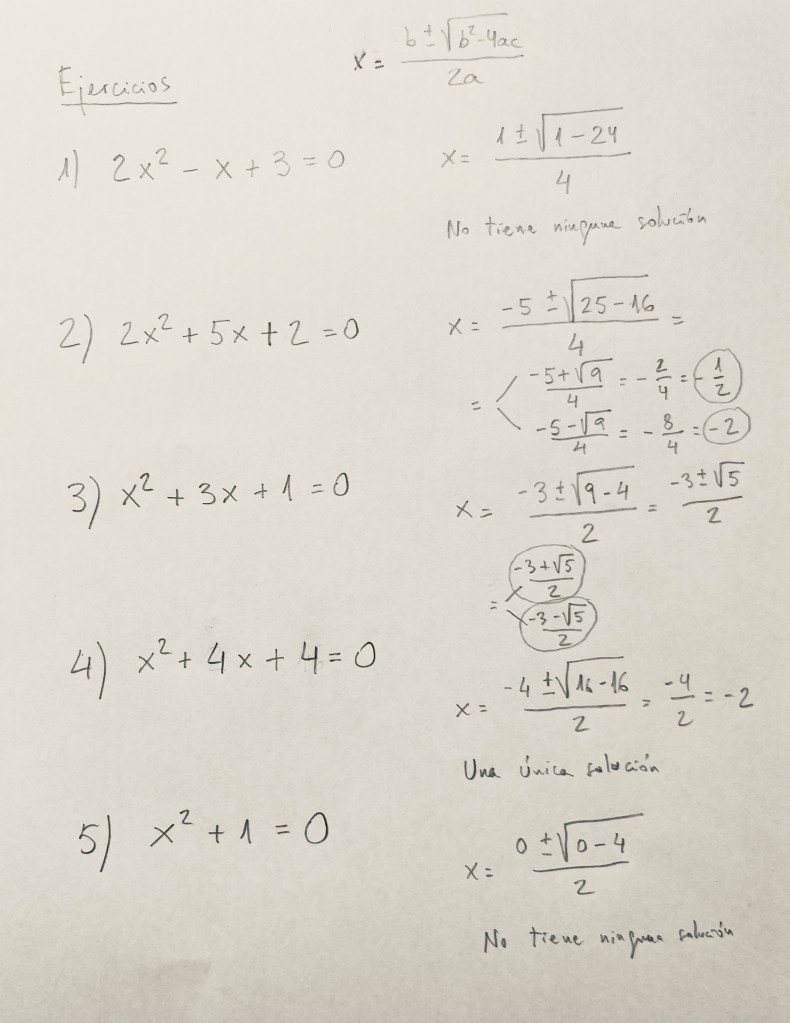 Ejercicios
x = (b ± √(b²-4ac)) / 2a
1) 2x² - x + 3 = 0
x = (1 ± √(1 - 24)) / 4
No tiene ninguna solución
2) 2x² + 5x + 2 = 0
x = (-5 ± √(25 - 16)) / 4 =
= (-5 + √9) / 4 = - 2/4 = - 1/2
(-5 - √9) / 4 = - 8/4 = -2
3) x² + 3x + 1 = 0
x = (-3 ± √(9 - 4)) / 2 = (-3 ± √5) / 2
= (-3 + √5) / 2
(-3 - √5) / 2
4) x² + 4x + 4 = 0
x = (-4 ± √(16 - 16)) / 2 = -4/2 = -2
Una única solución
5) x² + 1 = 0
x = (0 ± √(0 - 4)) / 2
No tiene ninguna solución